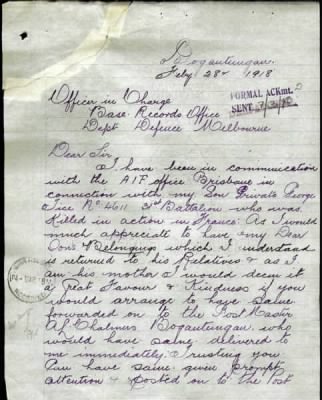 Bogantungan.
Feby 28th 1918
FORMAL ACKmt.
SENT
Officer in Charge
Base Records Office
Dept Defence Melbourne
Dear Sir
I have been in communication
with the A.I.F office Brisbane in
connection with my Son Private George
No 4611 31st Battalion who was
Killed in action in France. As I would
much appreciate to have my Dear
Son's Belongings which I understand
is returned to his Relatives & as I
am his mother I would deem it
a Great Favour & Kindness if you
would arrange to have same
forwarded on to the Post Master
Chalmers Bogantungan. who
would have same delivered to
me immediately. Trusting you
can have same given prompt
attention & posted on to the Post